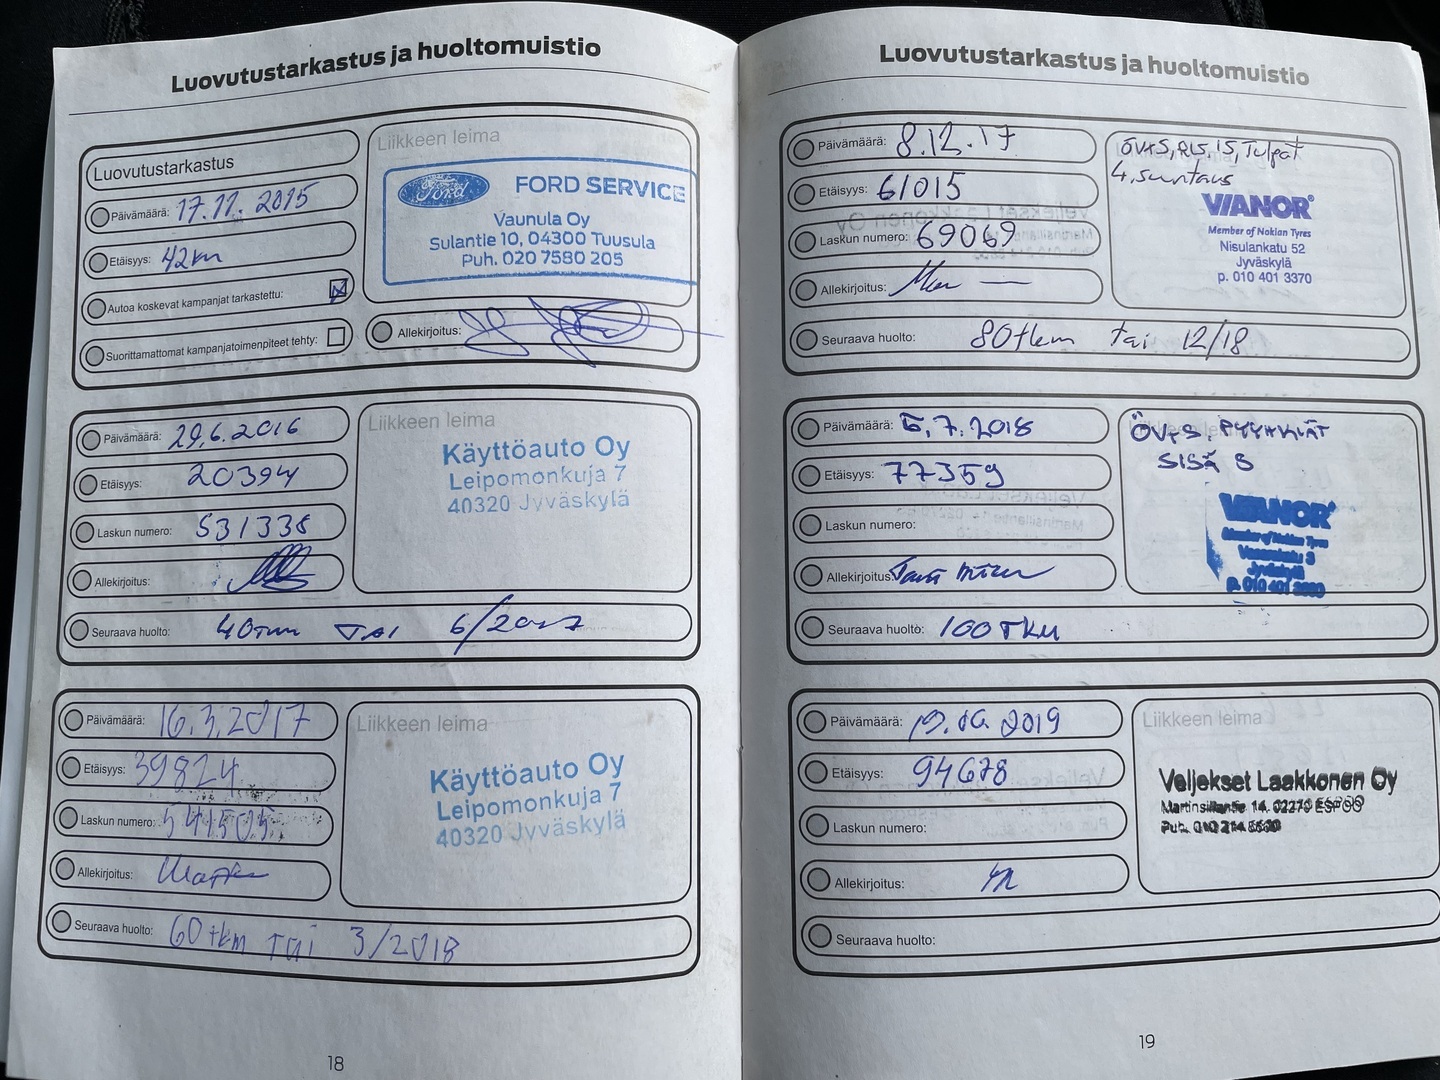 Luovutustarkastus ja huoltomuistio
Luovutustarkastus
Päivämäärä: 17.11.2015
Etäisyys: 42km
Autoa koskevat kampanjat tarkastettu:
Suorittamattomat kampanjatoimenpiteet tehty:
Liikkeen leima
Ford
FORD SERVICE
Vaunula Oy
Sulantie 10, 04300 Tuusula
Puh. 020 7580 205
Allekirjoitus:
Päivämäärä: 29.6.2016
Etäisyys: 20394
Laskun numero: 531338
Allekirjoitus:
Liikkeen leima
Käyttöauto Oy
Leipomonkuja 7
40320 Jyväskylä
Seuraava huolto: 40TKM TAI 6/2017
Päivämäärä: 16.3.2017
Etäisyys: 39824
Laskun numero: 541505
Allekirjoitus:
Liikkeen leima
Käyttöauto Oy
Leipomonkuja 7
40320 Jyväskylä
Seuraava huolto: 60tkm TAI 3/2018
18
Luovutustarkastus ja huoltomuistio
Päivämäärä: 8.12.17
Etäisyys: 61015
Laskun numero: 69069
Allekirjoitus:
ÖV+S, RS, IS, Tulpat
4. suntaus
VIANOR
Member of Nokian Tyres
Nisulankatu 52
Jyväskylä
p. 010 401 3370
Seuraava huolto: 80tkm tai 12/18
Päivämäärä: 6.7.2018
Etäisyys: 77359
Laskun numero:
Allekirjoitus:
ÖV+S, PYYHKIJÄT
SISÄ S
VIANOR
Member of Nokian Tyres
Vasarakatu 3
Jyväskylä
p. 010 401
Seuraava huolto: 100TKM
Päivämäärä: 2019
Etäisyys: 94678
Laskun numero:
Allekirjoitus:
Liikkeen leima
Veljekset Laakkonen Oy
Martinsillantie 14, 02270 ESPOO
Puh. 010 214
Seuraava huolto:
19